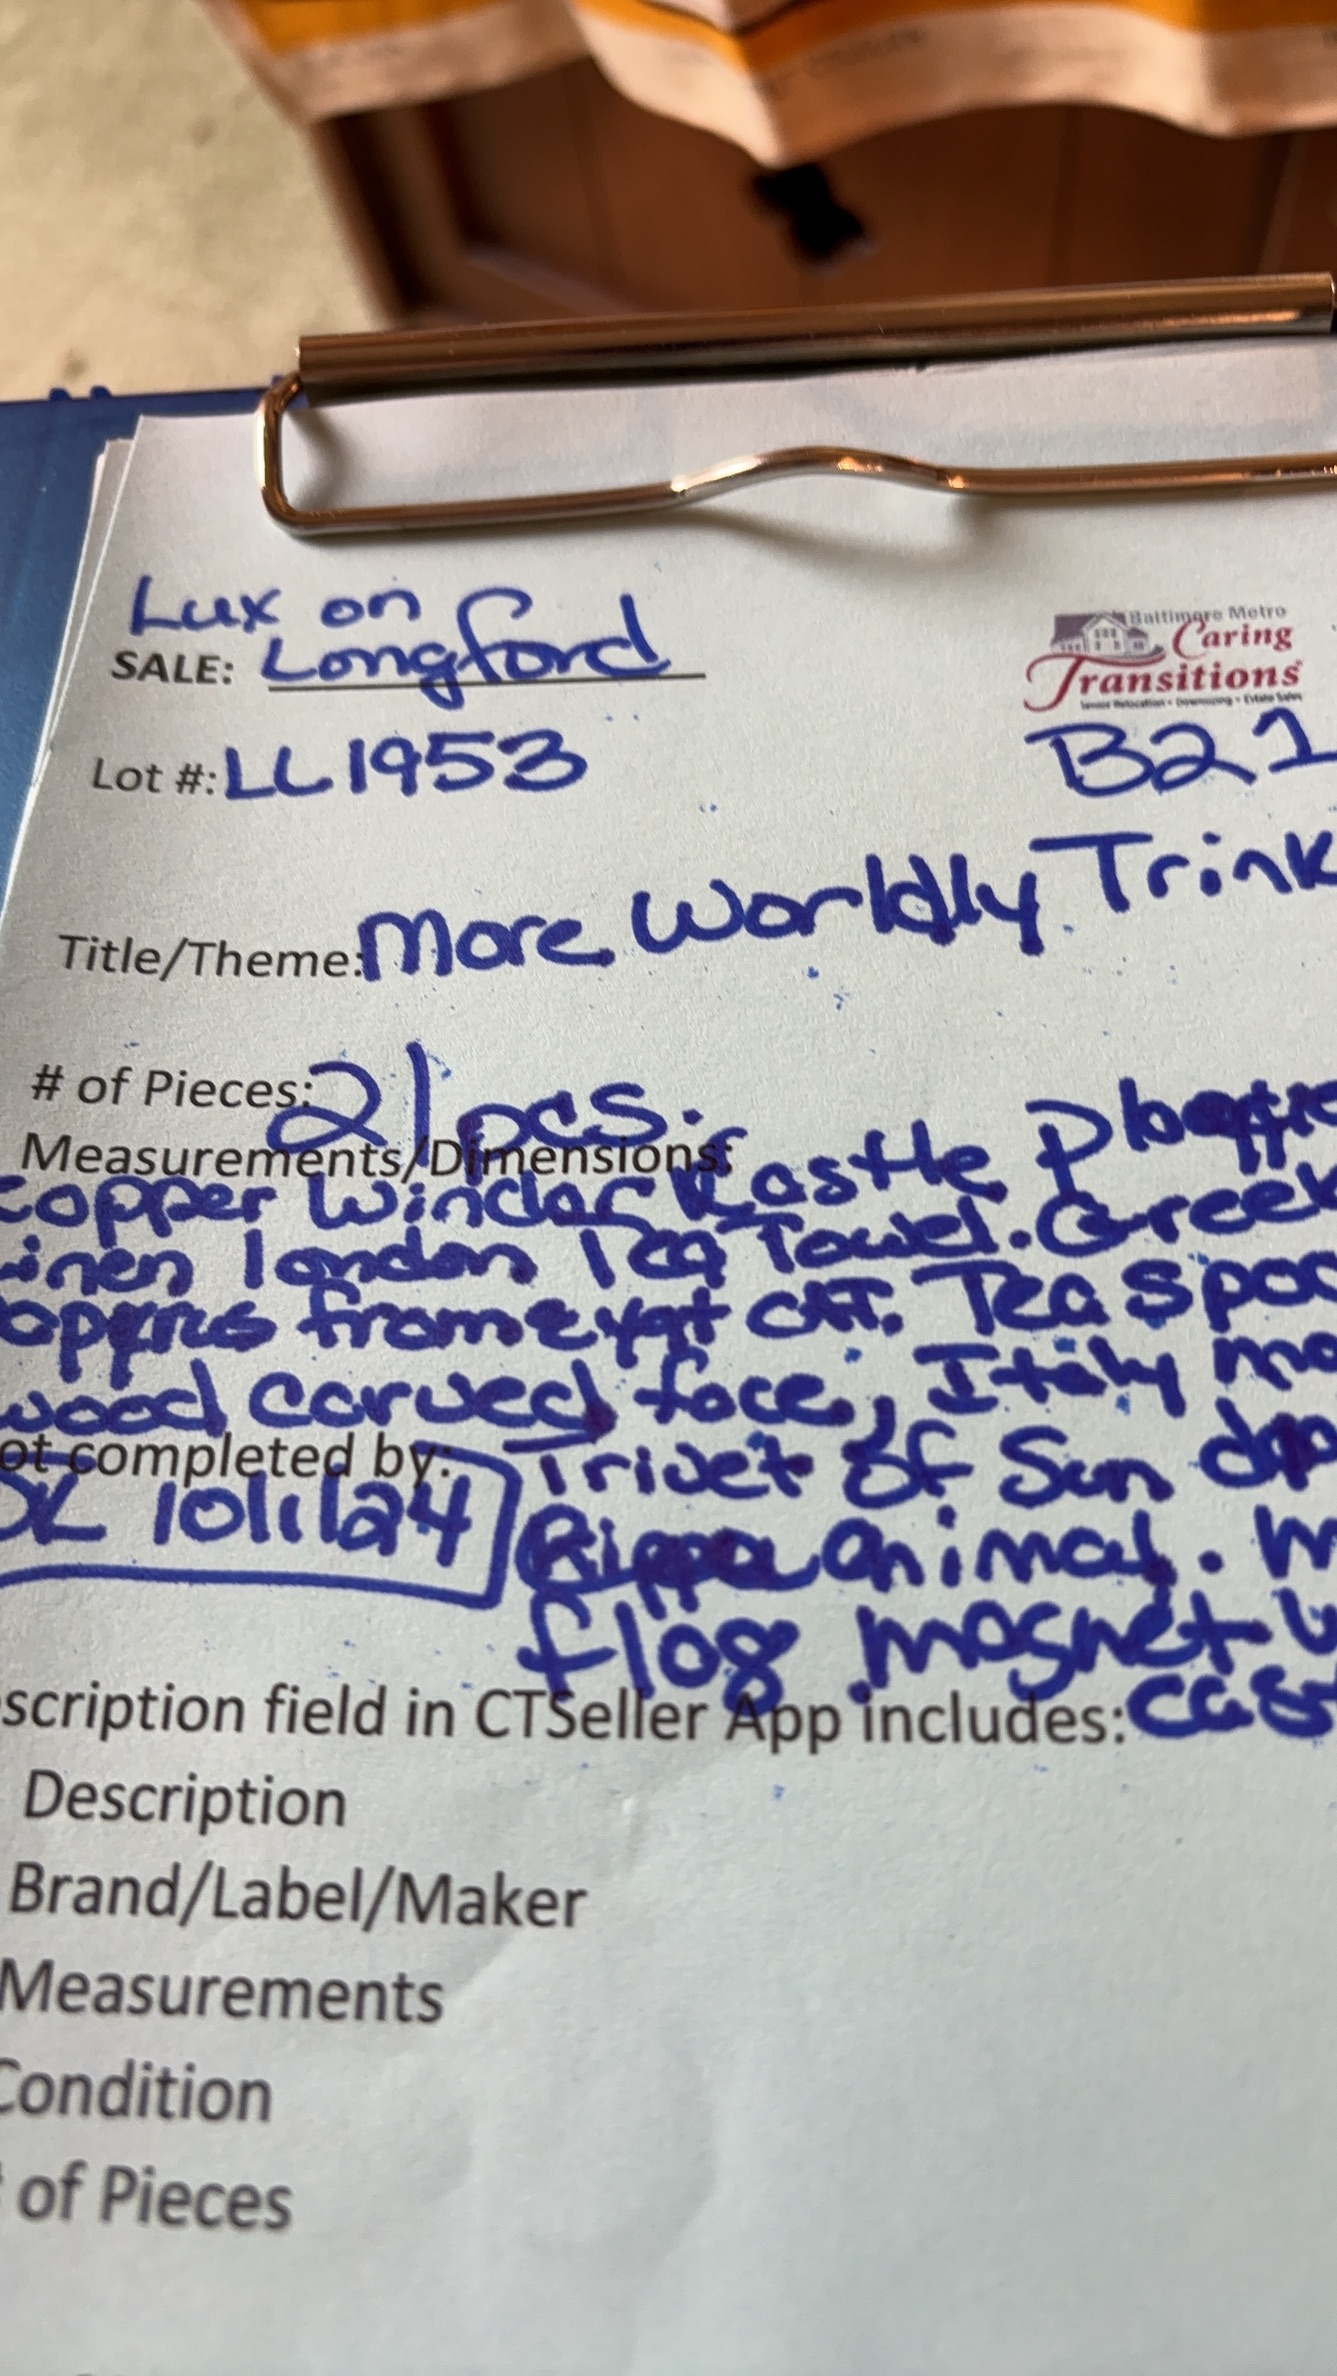 Lux on
SALE: Longford
Baltimore Metro
Caring
Transitions
Senior Relocation • Downsizing • Estate Sales
Lot #: LL1953
B21
Title/Theme: More Worldly Trink
# of Pieces: 21 pcs.
Measurements/Dimensions:
Copper Windor Kastle
inen london Tea Towel. Greek
from Egypt CAT. Tea Spoo
wood carved face, Italy ma
ot completed by: Trivet of Sun
animal.
flag magnet
scription field in CTSeller App includes:
Description
Brand/Label/Maker
Measurements
Condition
of Pieces